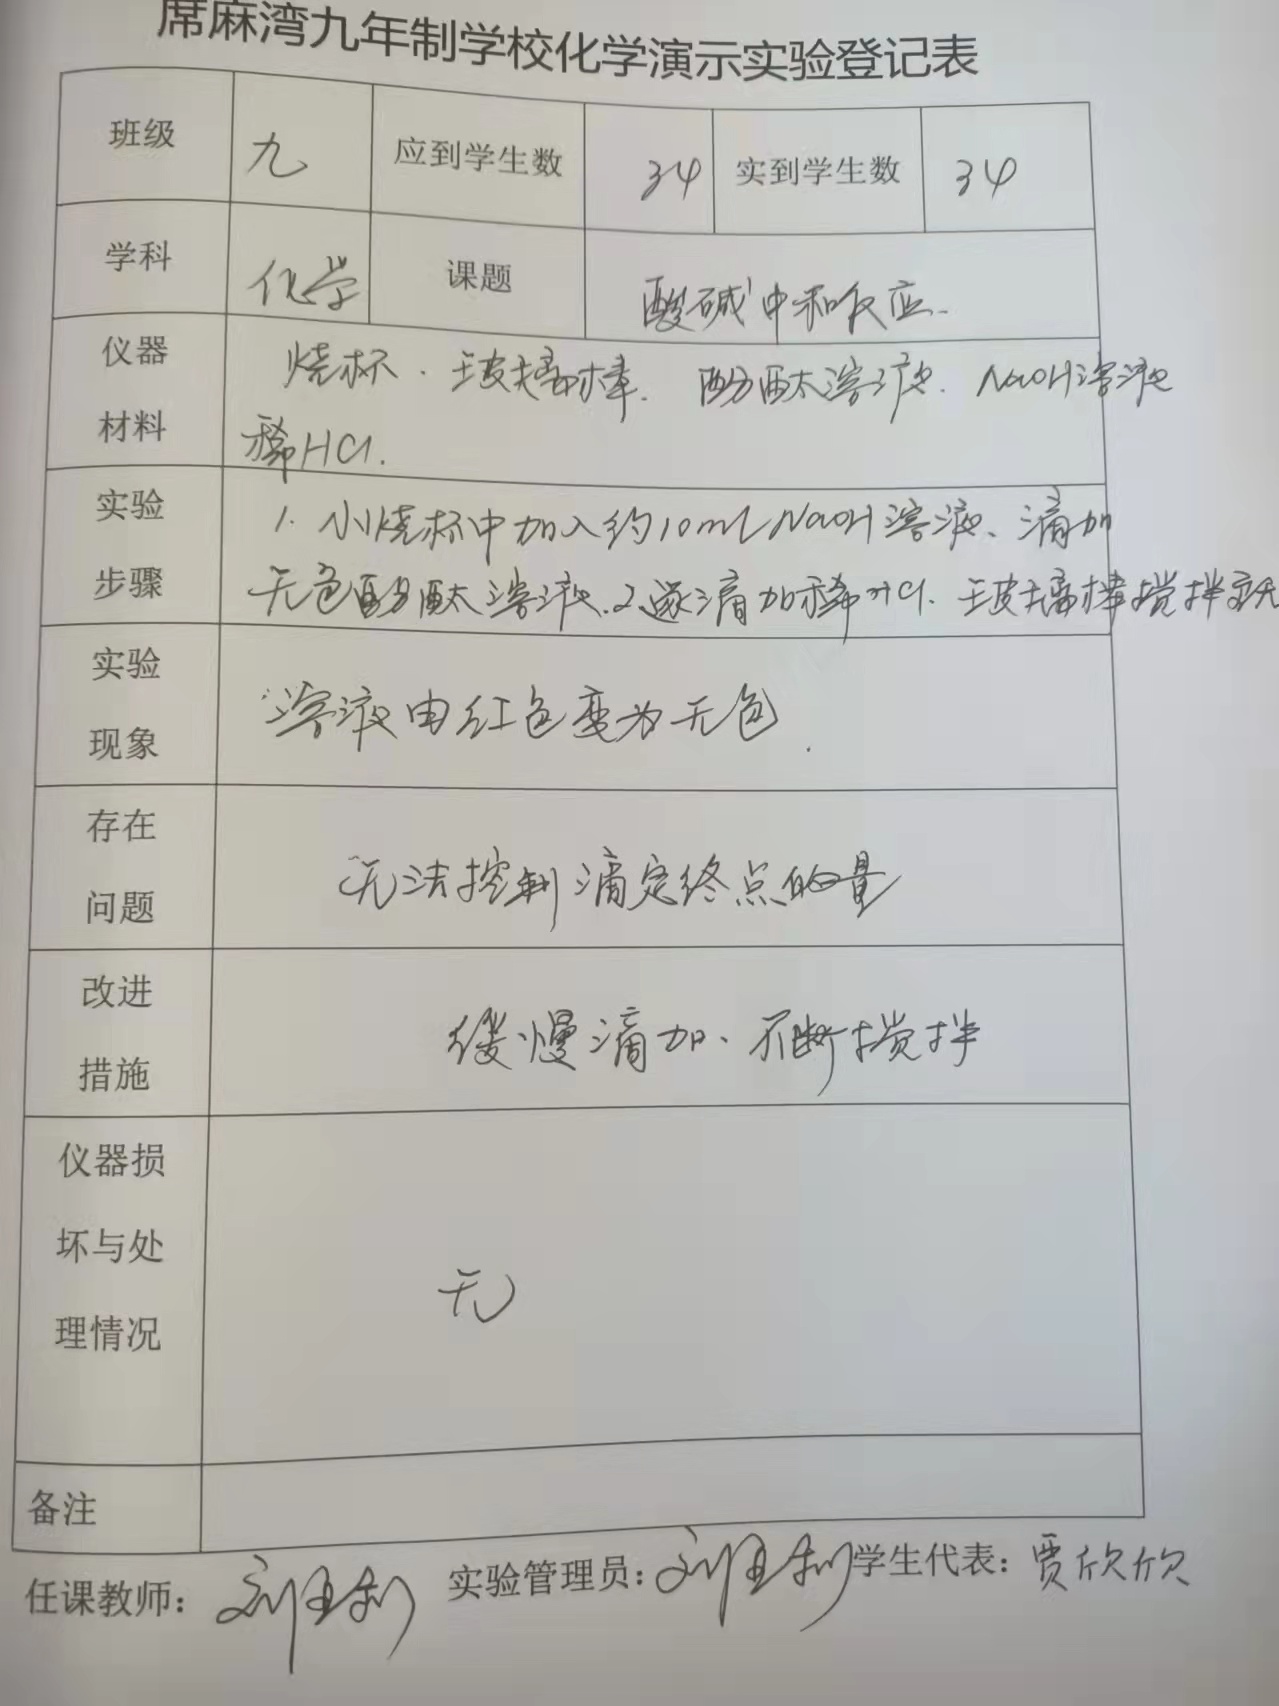 席麻湾九年制学校化学演示实验登记表
班级 九 应到学生数 34 实到学生数 34
学科 化学 课题 酸碱中和反应.
仪器 烧杯. 玻璃棒. 酚酞溶液. NaOH溶液
材料 稀HCl.
实验 1. 小烧杯中加入约10mLNaOH溶液、滴加
步骤 无色酚酞溶液.2.逐滴加稀HCl. 玻璃棒搅拌至无
实验
现象 溶液由红色变为无色.
存在
问题 无法控制滴定终点的量
改进
措施 缓慢滴加、不断搅拌
仪器损
坏与处 无
理情况
备注
任课教师: 实验管理员: 学生代表: 贾欣欣